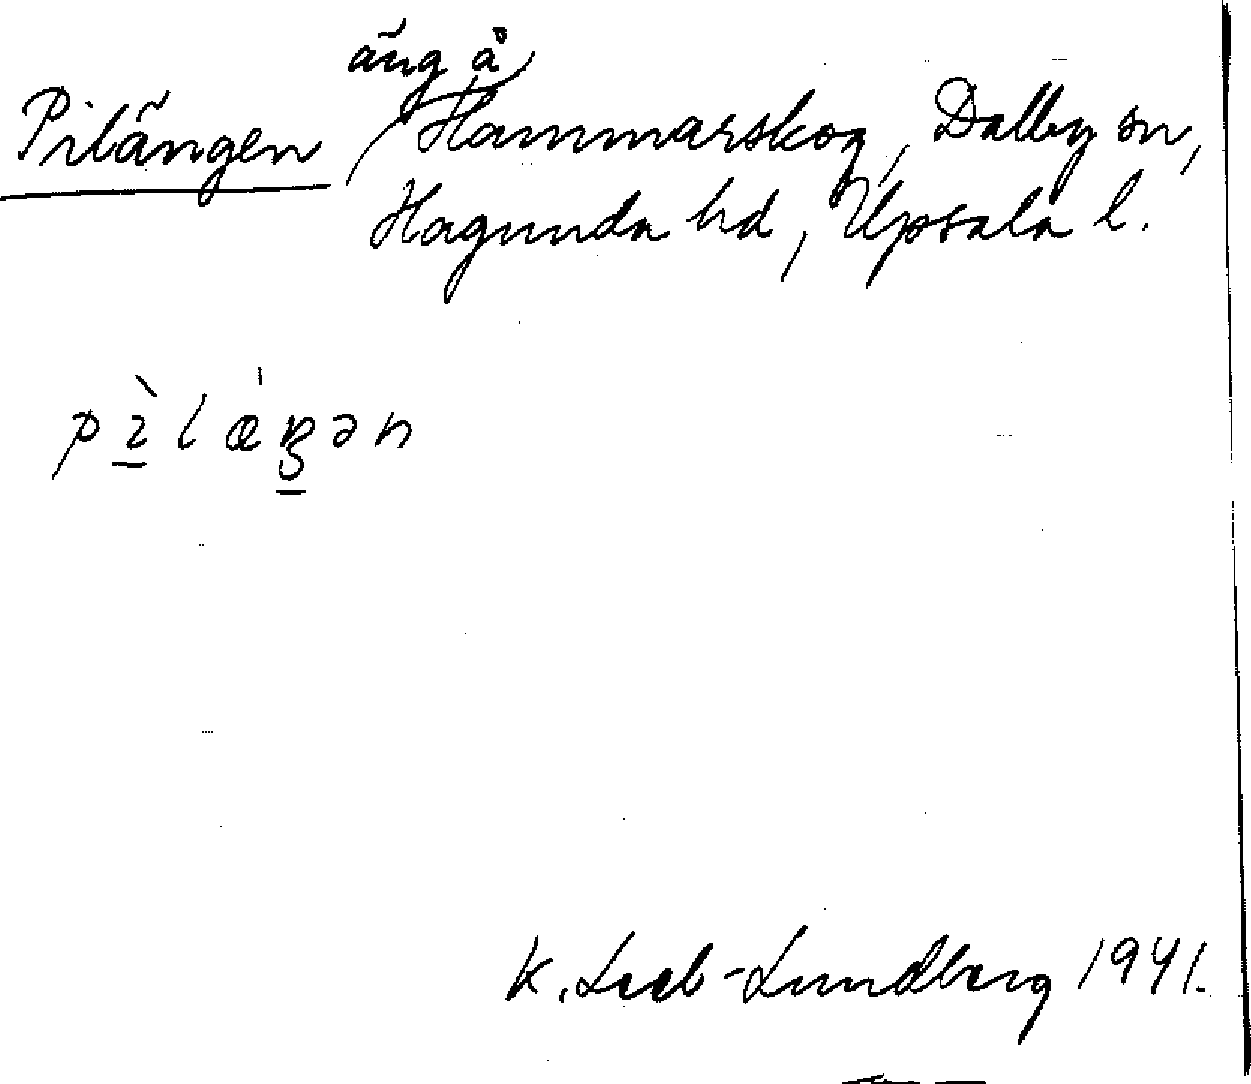 äng å
Pilängen, Hammarskog, Dalby sn,
Hagunda hd, Upsala l.
pìlǽŋən
K. Leeb-Lundberg 1941.